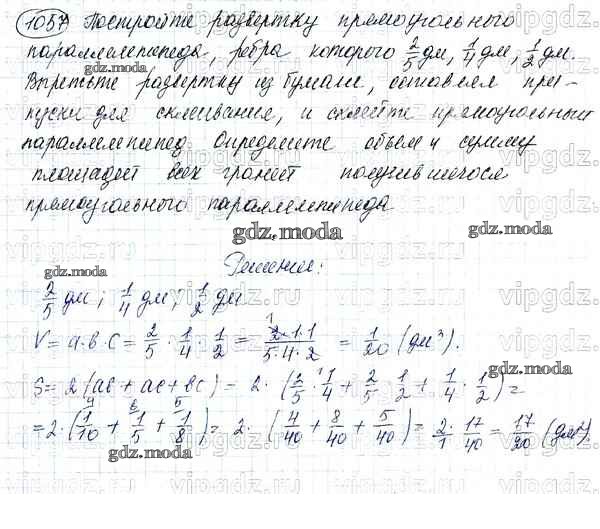 1057 Постройте развертку прямоугольного
параллелепипеда, ребра которого 2/5 дм, 1/4 дм, 1/2 дм.
Вырежьте развертку из бумаги, оставляя при-
пуски для склеивания, и склейте прямоугольный
параллелепипед. Определите объем и сумму
площадей всех граней получившегося
прямоугольного параллелепипеда.
gdz.moda
gdz.moda
Решение:
2/5 дм; 1/4 дм; 1/2 дм
V = a·b·c = 2/5 · 1/4 · 1/2 = 2·1·1/5·4·2 = 1/20 (дм³).
gdz.moda
S = 2(ab + ac + bc) = 2·(2/5 · 1/4 + 2/5 · 1/2 + 1/4 · 1/2) =
= 2·(1/10 + 1/5 + 1/8) = 2·(4/40 + 8/40 + 5/40) = 2/1 · 17/40 = 17/20 (дм²).
gdz.moda
vipgdz.ru